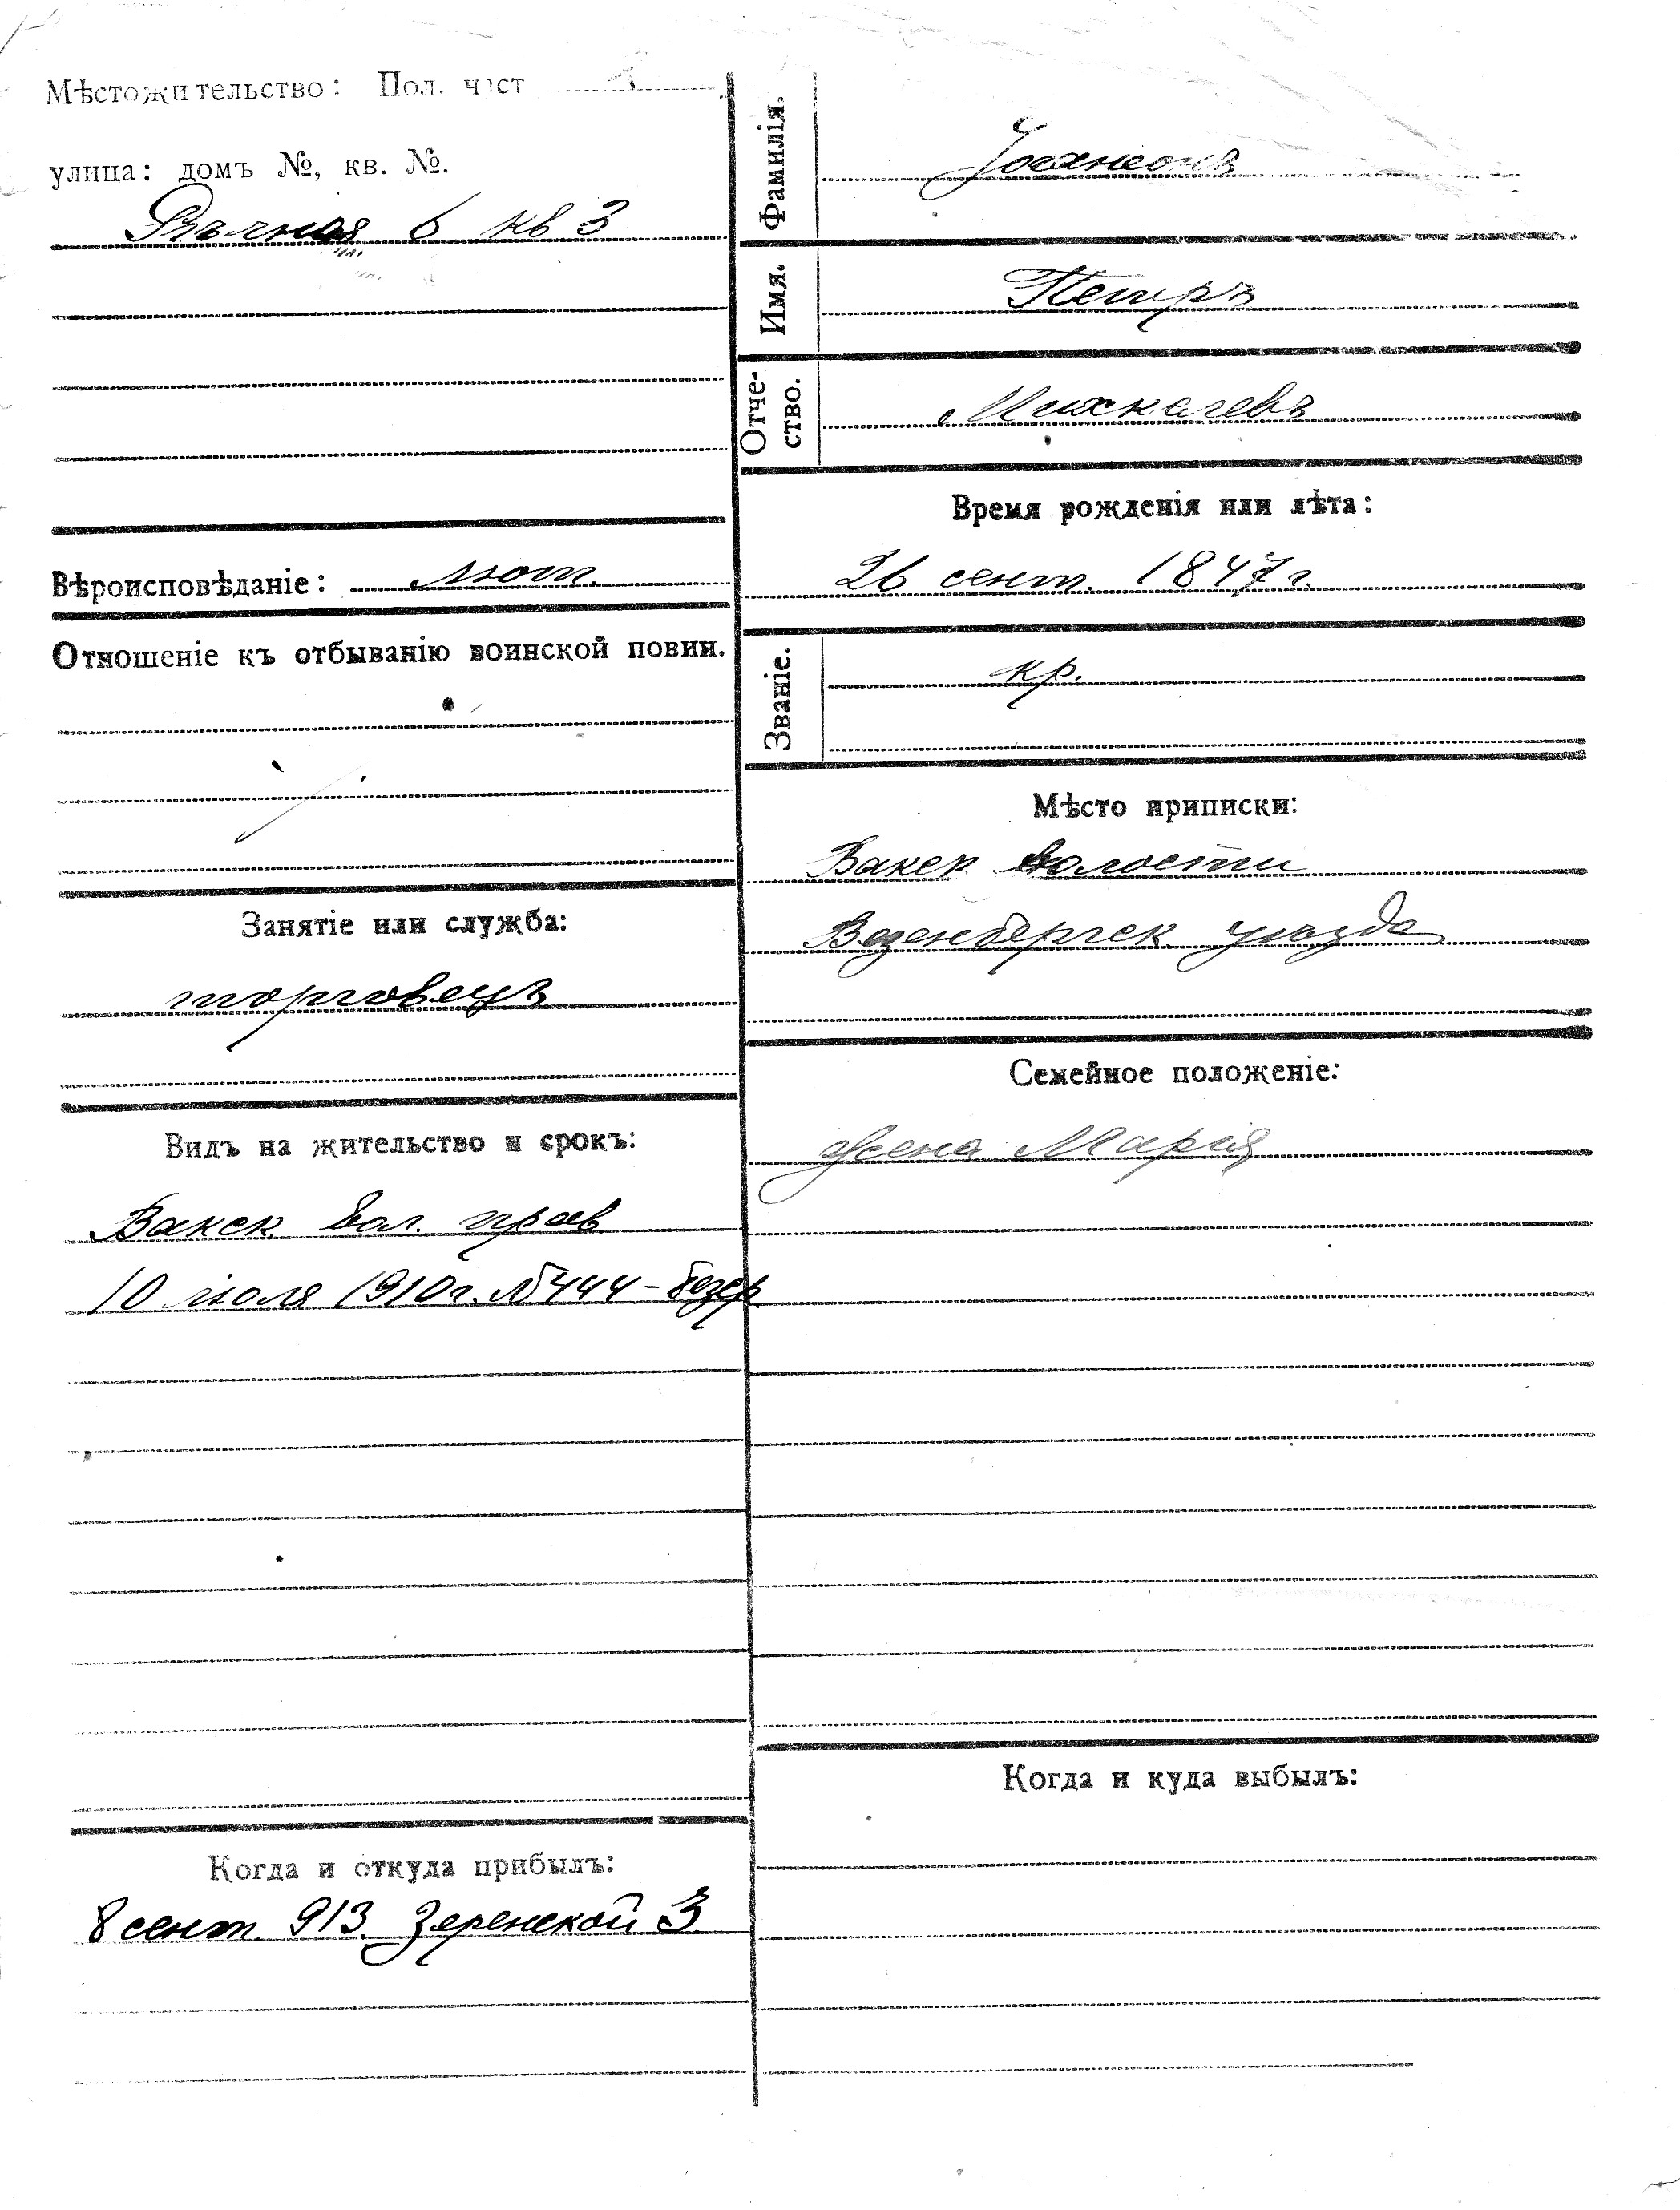 Мѣстожительство: Пол. част
улица: домъ №, кв. №.
6 кв 3
Вѣроисповѣданіе: лют.
Отношеніе къ отбыванію воинской повин.
Занятіе или служба:
торговецъ
Видъ на жительство и срокъ:
Вакск. вол. прав.
10 іюля 1910 г. № 444 – безср
Когда и откуда прибылъ:
8 сент. 913 3
Фамилія. Іоахнсонъ
Имя. Петръ
Отче-
ство. Михкалевъ
Время рожденія или лѣта:
26 сент. 1847 г.
Званіе. кр.
Мѣсто приписки:
Вакск волости
Везенбергск. уѣзда
Семейное положеніе:
жена Марія
Когда и куда выбылъ: